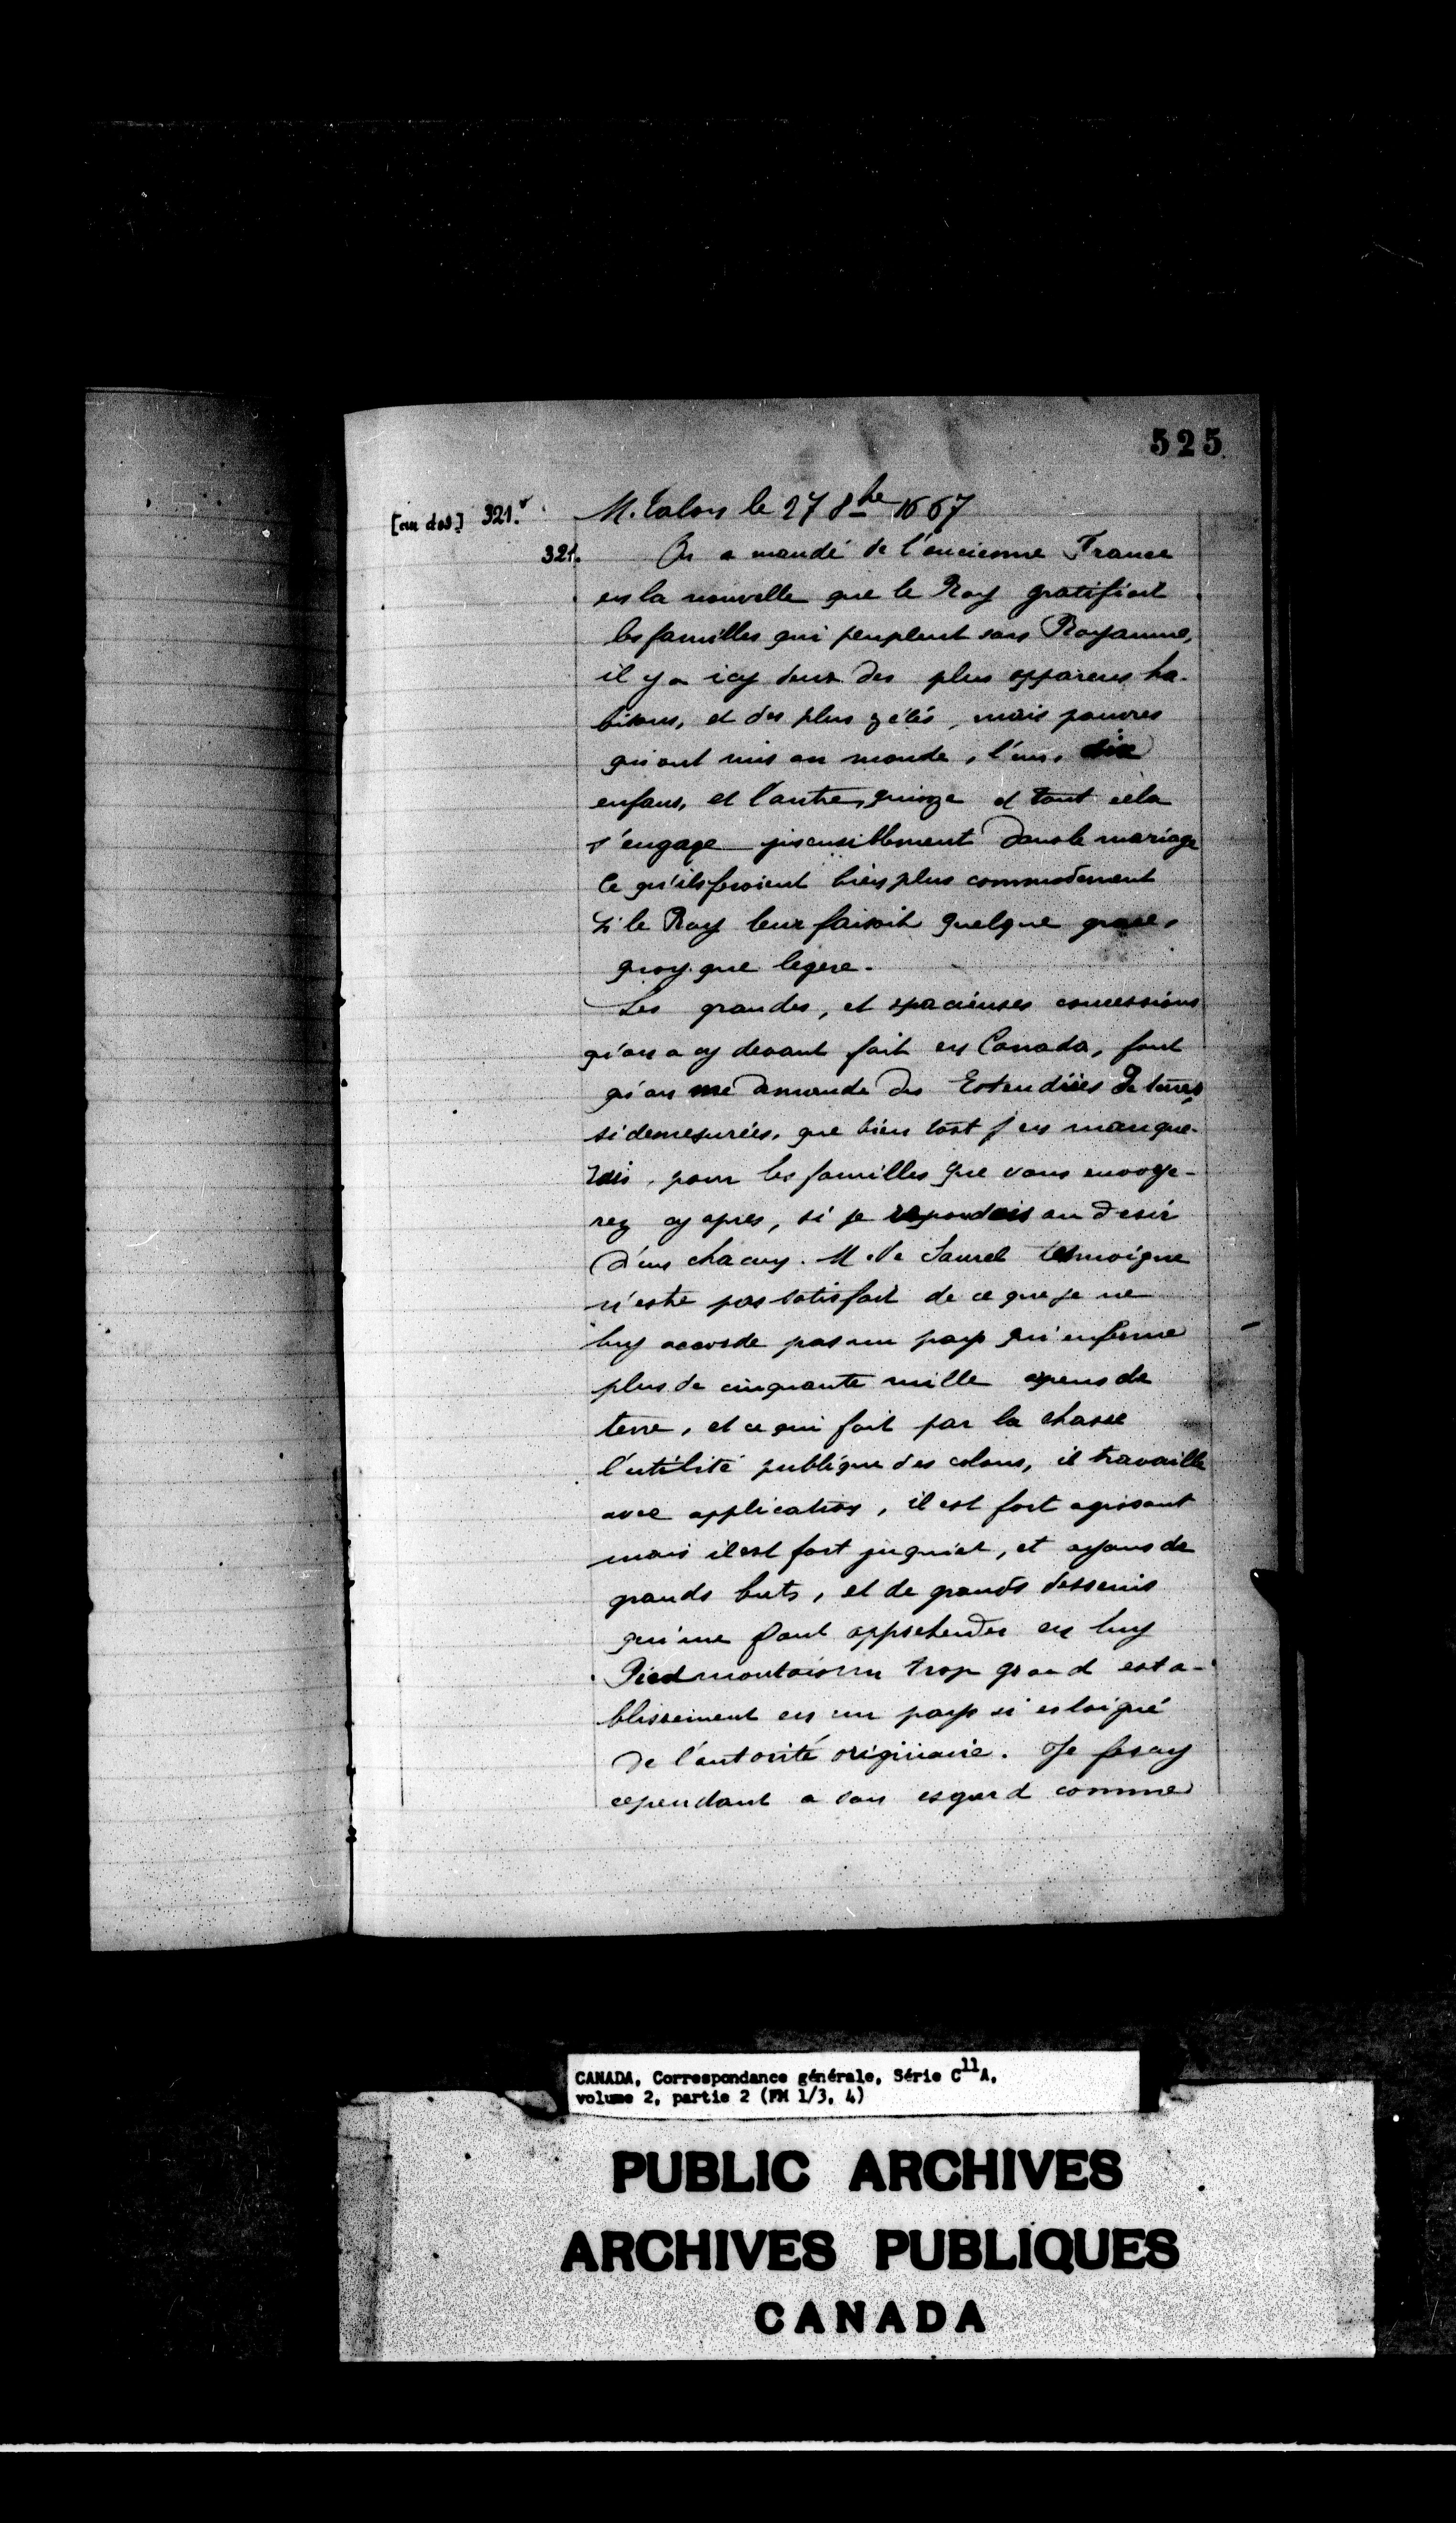 525
[au dos] 321.v M. Talon le 27 8bre 1667
321. On a mandé de l'ancienne France
en la nouvelle que le Roy gratifioit
les familles qui peuplent son Royaume,
il y a icy deux des plus apparens ha-
bitans, et des plus zélés, mais pauvres
qui ont mis au monde, l'un, dix
enfans, et l'autre, quinze et tout cela
s'engage jnsensiblement dans le mariage
ce qu'ils feroient bien plus commodement
si le Roy leur faisoit quelque grace,
quoy que legere.
Les grandes, et spacieuses concessions
qu'on a cy devant fait en Canada, font
qu'on me demande des Estendües de terres
si demesurées, que bien tost j'en manque-
rois, pour les familles que vous envoye-
rez cy apres, si je repondois au desir
d'un chacun. M. de Saurel tesmoigne
n'estre pas satisfait de ce que je ne
luy accorde pas un pays qui enferme
plus de cinquante mille arpens de
terre, et ce qui fait par la chasse
l'utilité publique des colons, il travaille
avec application, il est fort agissant
mais il est fort jnquiet, et ayans de
grands buts, et de grands desseins
qui me font apprehender en luy
Piedmontois un trop grand esta-
blissement en un pays si esloigné
de l'autorité originaire. Je feray
cependant a son esgard comme
CANADA, Correspondance générale, Série C11A,
volume 2, partie 2 (FM 1/3, 4)
PUBLIC ARCHIVES
ARCHIVES PUBLIQUES
CANADA